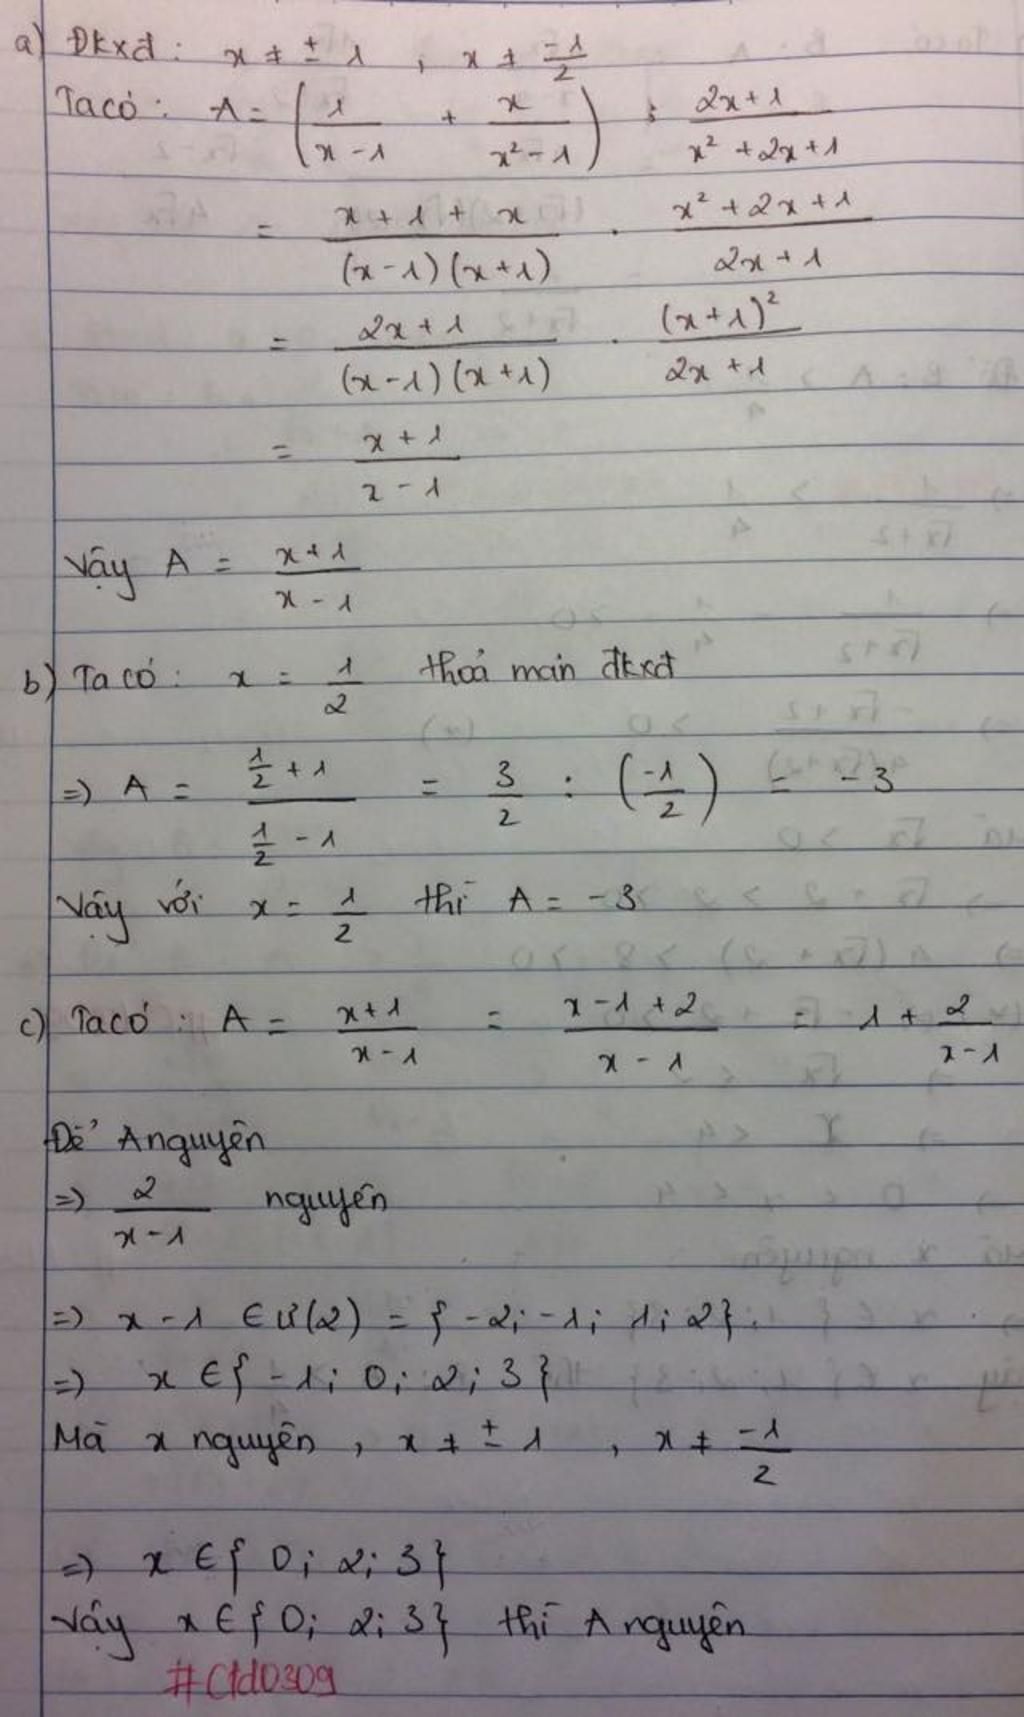 a) Đkxđ : x ≠ ± 1 , x ≠ -1/2
Ta có : A = (1/(x - 1) + x/(x² - 1)) : (2x + 1)/(x² + 2x + 1)
= (x + 1 + x)/((x - 1)(x + 1)) . (x² + 2x + 1)/(2x + 1)
= (2x + 1)/((x - 1)(x + 1)) . (x + 1)²/(2x + 1)
= (x + 1)/(x - 1)
Vậy A = (x + 1)/(x - 1)
b) Ta có : x = 1/2 thoả mãn đkxđ
=> A = (1/2 + 1)/(1/2 - 1) = 3/2 : (-1/2) = -3
Vậy với x = 1/2 thì A = -3
c) Ta có : A = (x + 1)/(x - 1) = (x - 1 + 2)/(x - 1) = 1 + 2/(x - 1)
Để A nguyên
=> 2/(x - 1) nguyên
=> x - 1 ∈ Ư(2) = { -2; -1; 1; 2}.
=> x ∈ { -1; 0; 2; 3}
Mà x nguyên , x ≠ ± 1 , x ≠ -1/2
=> x ∈ { 0; 2; 3}
Vậy x ∈ { 0; 2; 3} thì A nguyên
#Ctd0309